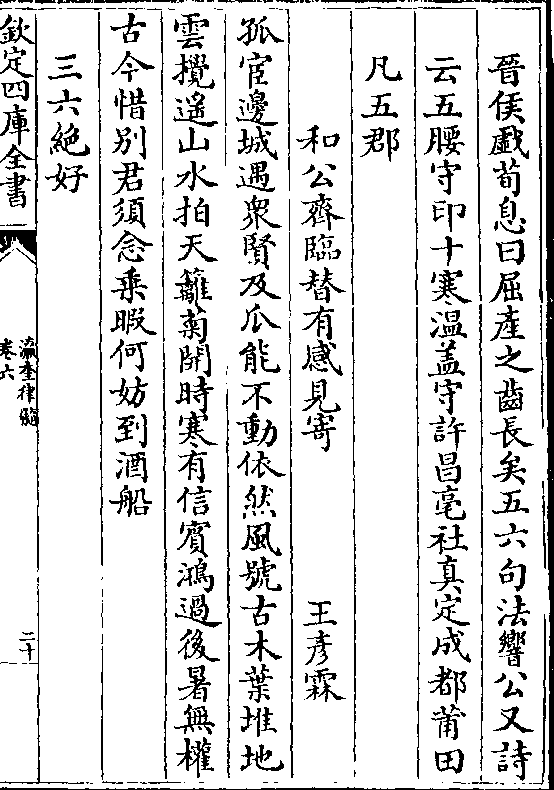 晉侯戲荀息曰屈產之齒長矣五六句法響公又詩
云五腰守印十寒溫蓋守許昌亳社真定成都莆田
凡五郡
和公齊臨替有感見寄 王彥霖
孤宦邊城遇衆賢及瓜能不動依然風號古木葉堆地
雲攪遥山水拍天籬菊開時寒有信賓鴻過後暑無權
古今惜别君須念乗暇何妨到酒船
三六絶好
欽定四庫全書
瀛奎律髓
卷六
二十